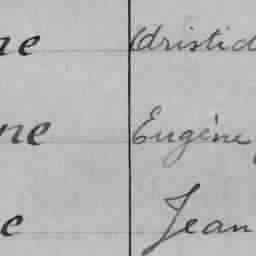 ne Aristid
ne Eugène
e Jean